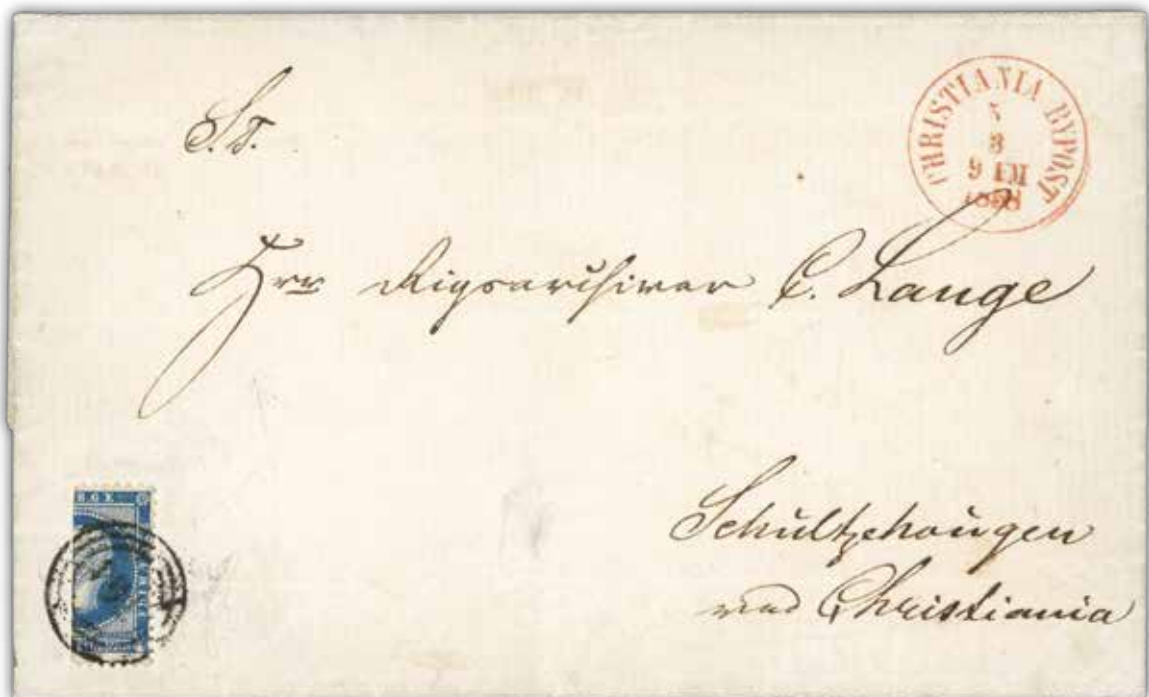 CHRISTIANIA BYPOST
8
9 FM
S.T.
Herr Rigsarchivar C. Lange
Schultzehaugen
ved Christiania
RGE